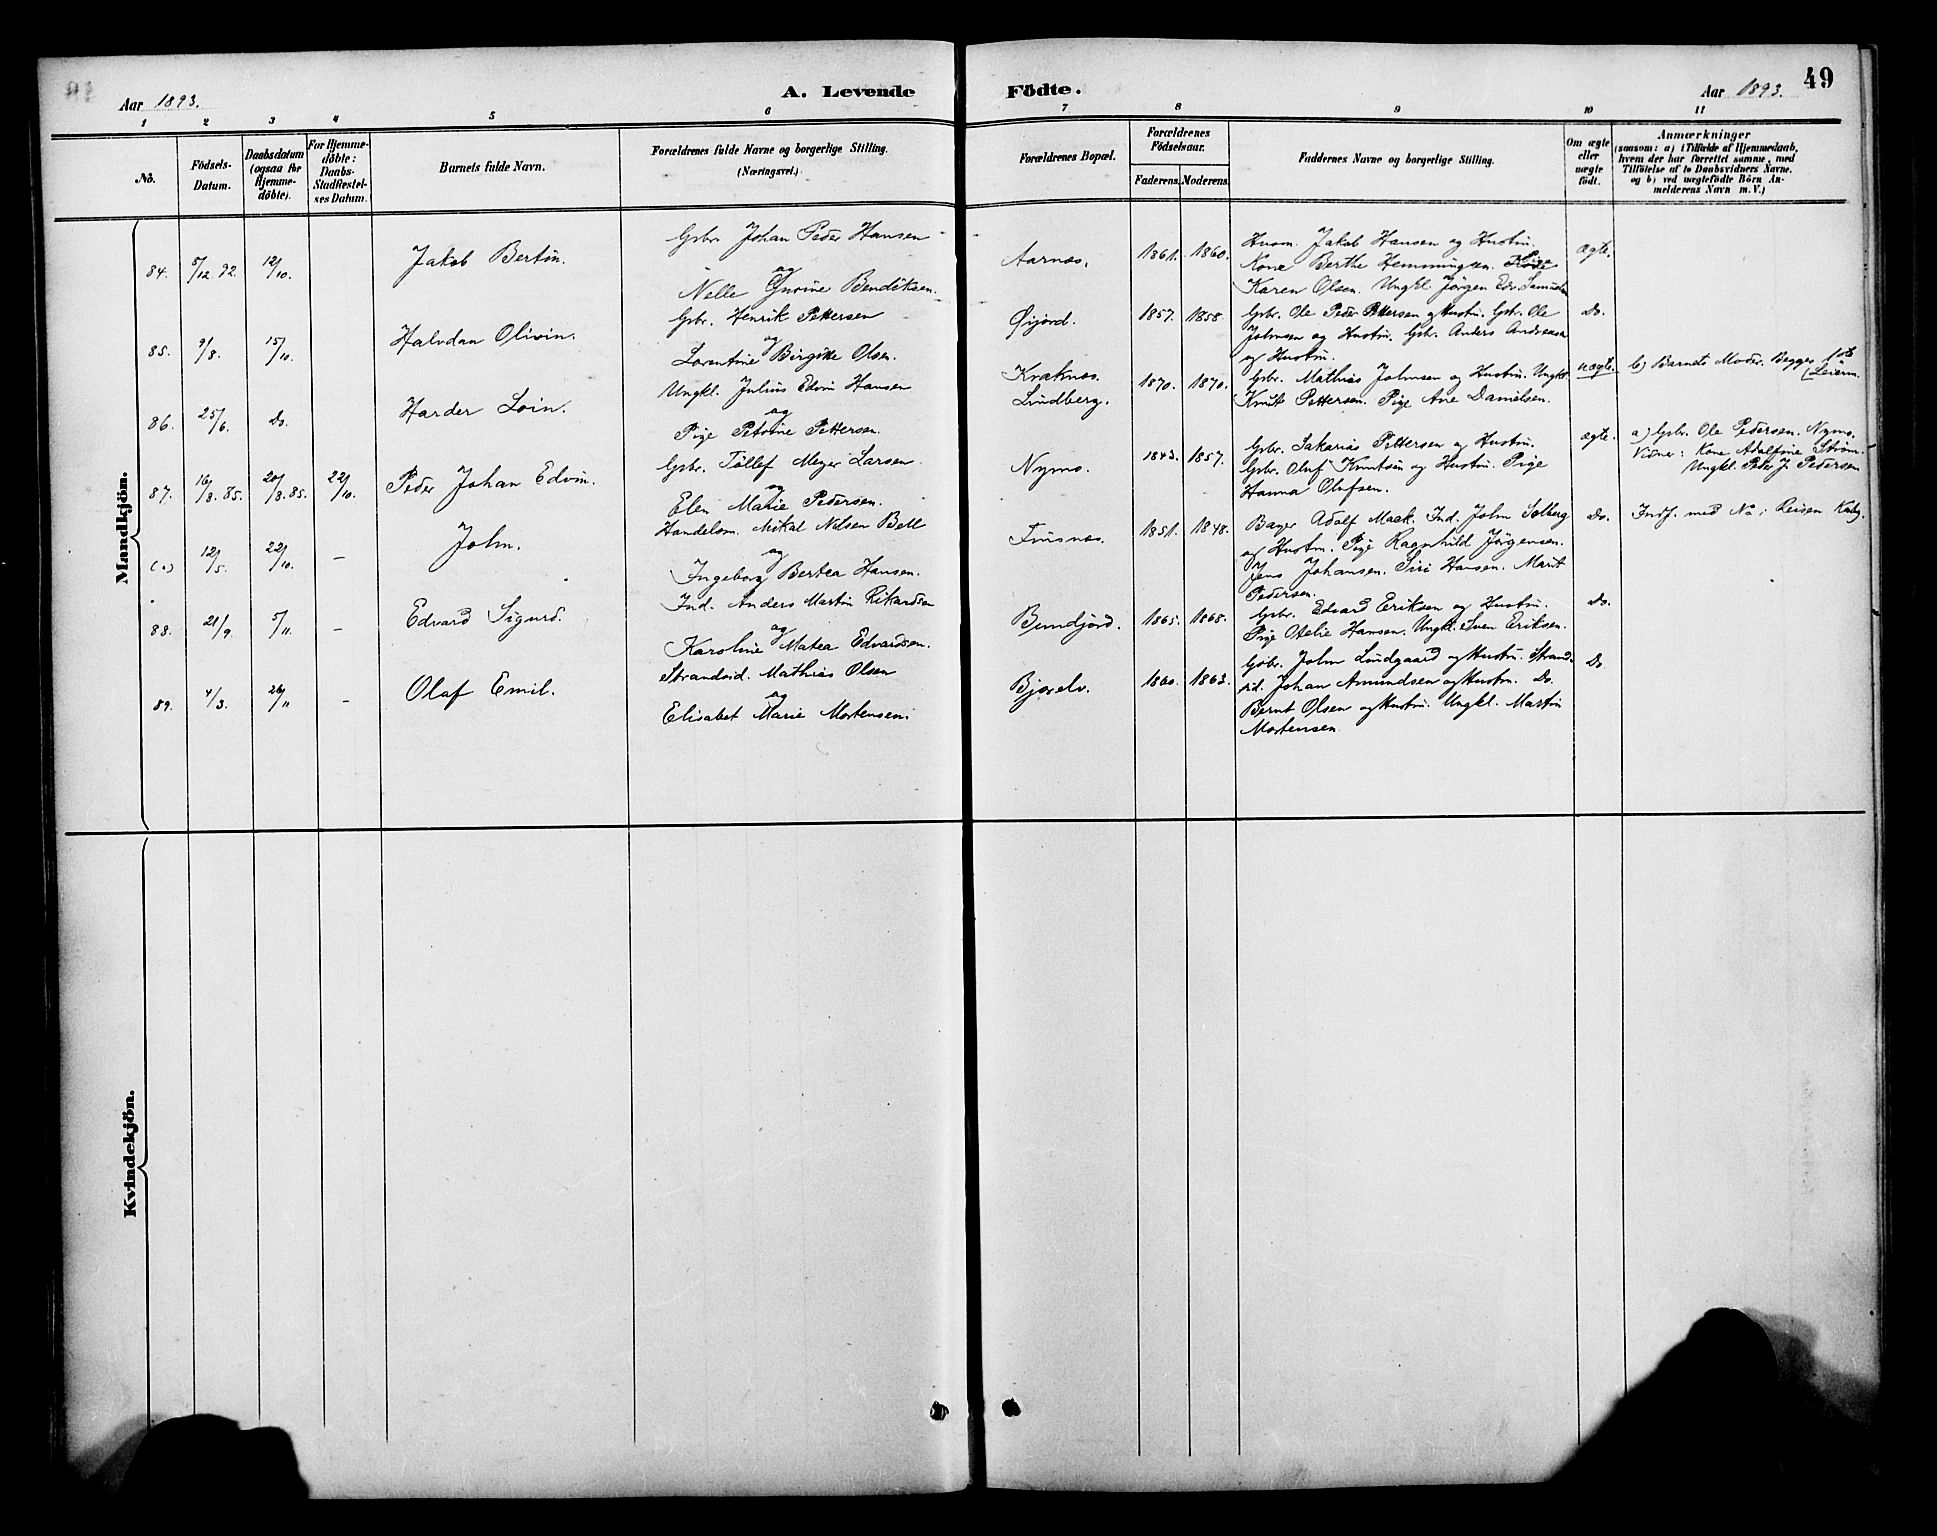 49
Aar 1893.
A. Levende Födte.
Aar 1893.
1 2 3 4 5 6 7 8 9 10 11
No.
Födsels-Datum.
Daabsdatum (ogsaa for Hjemme-döbte).
For Hjemme-döbte: Daabs-Stadfæstel-ses Datum.
Barnets fulde Navn.
Forældrenes fulde Navne og borgerlige Stilling.
(Næringsvei.)
Forældrenes Bopæl.
Forældrenes Födselsaar.
Faderens. Moderens.
Faddernes Navne og borgerlige Stilling.
Om ægte eller uægte födt.
Anmærkninger
(saasom: a) i Tilfælde af Hjemmedaab,
hvem der har forrettet samme, med
Tilföielse af to Daabsvidners Navne.
og b) ved uægtefödte Börn An-
melderens Navn m. V.)
Mandkjön.
84. 5/12 92. 12/10. Jakob Bertin.
Gbr. Johan Peder Hansen
og
Nelle Gurine Bendiksen.
Aarnes. 1861. 1860.
Huom. Jakob Hansen og Hustru.
Kone Berthe Hemmingsen. Pige
Karen Olsen. Ungkl Jörgen Edv. Samuelsen
ægte.
85. 9/8. 15/10. Halvdan Olivin.
Gbr. Henrik Pettersen
og
Lorentine Birgitte Olsen.
Öijord. 1857. 1858.
Gbr. Ole Peder Pettersen og Hustru. Gbr. Ole
Johnsen og Hustru. Gbr. Anders Andreasen
og Hustru.
Do.
86. 25/6. Do. Harder Loin.
Ungkl. Julius Edvin Hansen
og
Pige Petrine Pettersen.
Kræknes.
Lindberg. 1870. 1870.
Gbr. Mathias Johnsen og Hustru. Ungkl.
Knut Pettersen. Pige Ane Danielsen.
uægte. b) Barnets Moder. Begges 1ste
Leierm.
87. 16/8. 85. 20/8. 85. 22/10. Peder Johan Edvin.
Gbr. Tollef Meyer Larsen
og
Elen Marie Pedersen.
Nymo. 1843. 1857.
Gbr. Sakarias Pettersen og Hustru.
Gbr. Oluf Knutsen og Hustru. Pige
Hanna Olufsen.
ægte. a) Gbr. Ole Pedersen. Nymo.
Vidner: Kone Adolfine Ström.
Ungkl. Peder J. Pedersen
12/5. 22/10. – John.
Handelsm. Mikal Nilsen Bell
og
Ingeborg Bertea Hansen.
Finsnes. 1851. 1848.
Bager Adolf Maak. Ind. John Solberg
og Hustru. Pige Ragnhild Jörgensen.
Jens Johansen. Siri Hansen. Marit
Pedersen.
Do. Indf. med No i Reisen Kirkeb.
88. 21/9. 5/11. – Edvard Sigurd.
Ind. Anders Martin Rikardsen
og
Karoline Matea Edvardsen.
Bundjord. 1865. 1868.
Gbr. Edvard Eriksen og Hustru.
Pige Otelie Hansen. Ungkl. Sven Eriksen.
Do.
89. 4/3. 26/11 – Olaf Emil.
Strandsid. Mathias Olsen
og
Elisabet Marie Mortensen.
Bjorelv. 1860. 1863.
Gbr. John Lindgaard og Hustru. Strand-
sid. Johan Amundsen og Hustru. Do.
Bernt Olsen og Hustru. Ungkl. Martin
Mortensen.
Do.
Kvindekjön.